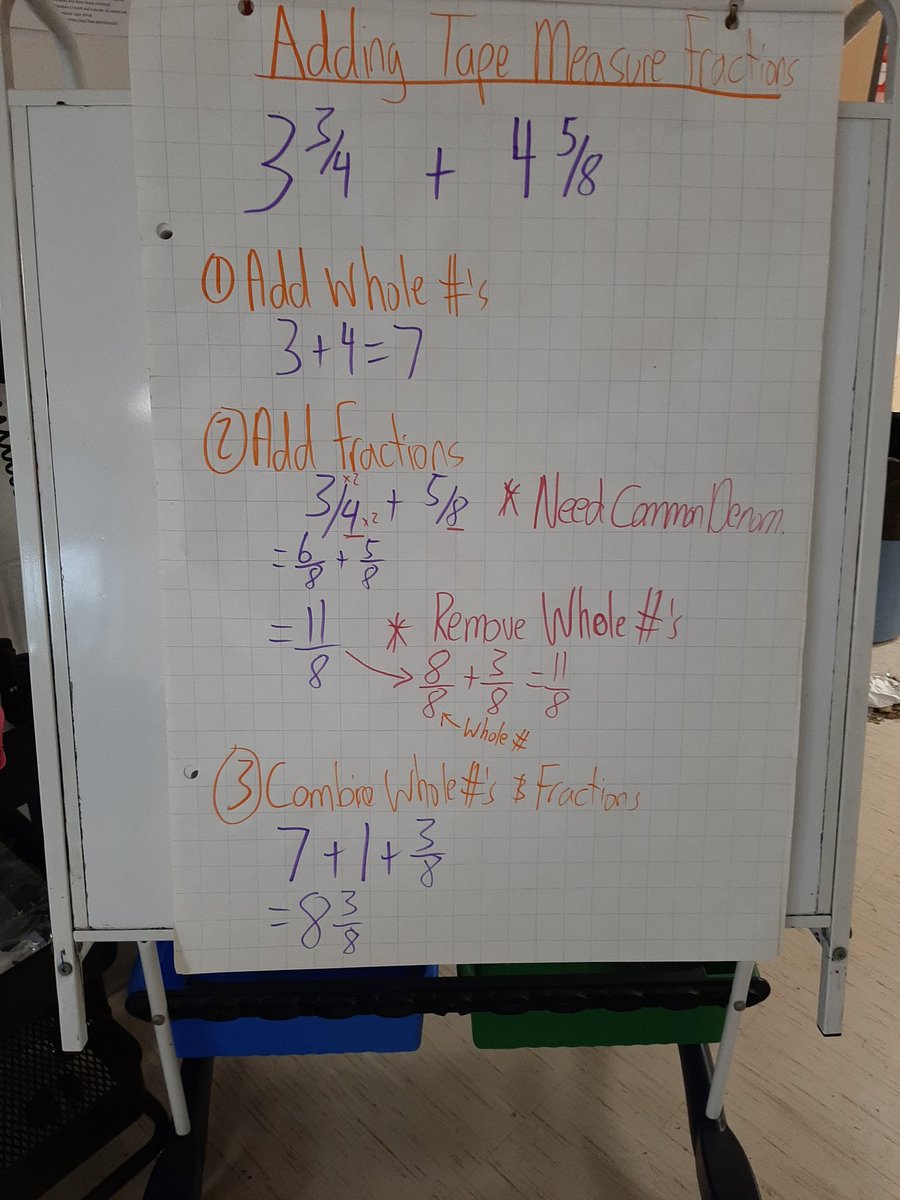 Adding Tape Measure Fractions
3 3/4 + 4 5/8
① Add Whole #'s
3+4=7
② Add Fractions
x2
3/4 x2 + 5/8 * Need Common Denom.
= 6/8 + 5/8
= 11/8 * Remove Whole #'s
8/8 + 3/8 = 11/8
Whole #
③ Combine Whole #'s & Fractions
7+1+3/8
= 8 3/8